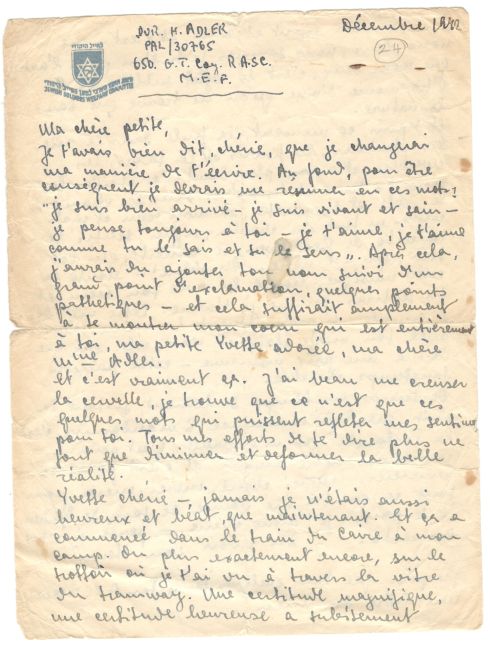 Décembre 1942
24
DVR. H. ADLER
PAL/30765
650. G.T. Coy. R.A.S.C.
M.E.F.
JEWISH SOLDIERS WELFARE COMMITTEE
Ma chère petite,
Je t'avais bien dit, chérie, que je changerai
ma manière de t'écrire. Au fond, pour être
conséquent je devrais me resumer en ces mots:
"je suis bien arrivé - je suis vivant et sain -
je pense toujours à toi - je t'aime, je t'aime
comme tu le sais et tu le sens". Après cela,
j'aurais du ajouter ton nom suivi d'un
grand point d'exclamation, quelques points
pathétiques - et cela suffirait amplement
à te montrer mon coeur qui est entièrement
à toi, ma petite Yvette adorée, ma chère
Mme Adler.
Et c'est vraiment ça. J'ai beau me creuser
la cervelle, je trouve que ce n'est que ces
quelques mots qui puissent refleter mes sentim
pour toi. Tous mes efforts de te dire plus ne
font que diminuer et deformer la belle
réalité.
Yvette chérie - jamais je n'étais aussi
heureux et béat, que maintenant. Et ça a
commencé dans le train du Caire à mon
camp. Ou plus exactement encore, sur le
trottoir où je t'ai vu à travers la vitre
du tramway. Une certitude magnifique,
une certitude heureuse a subitement